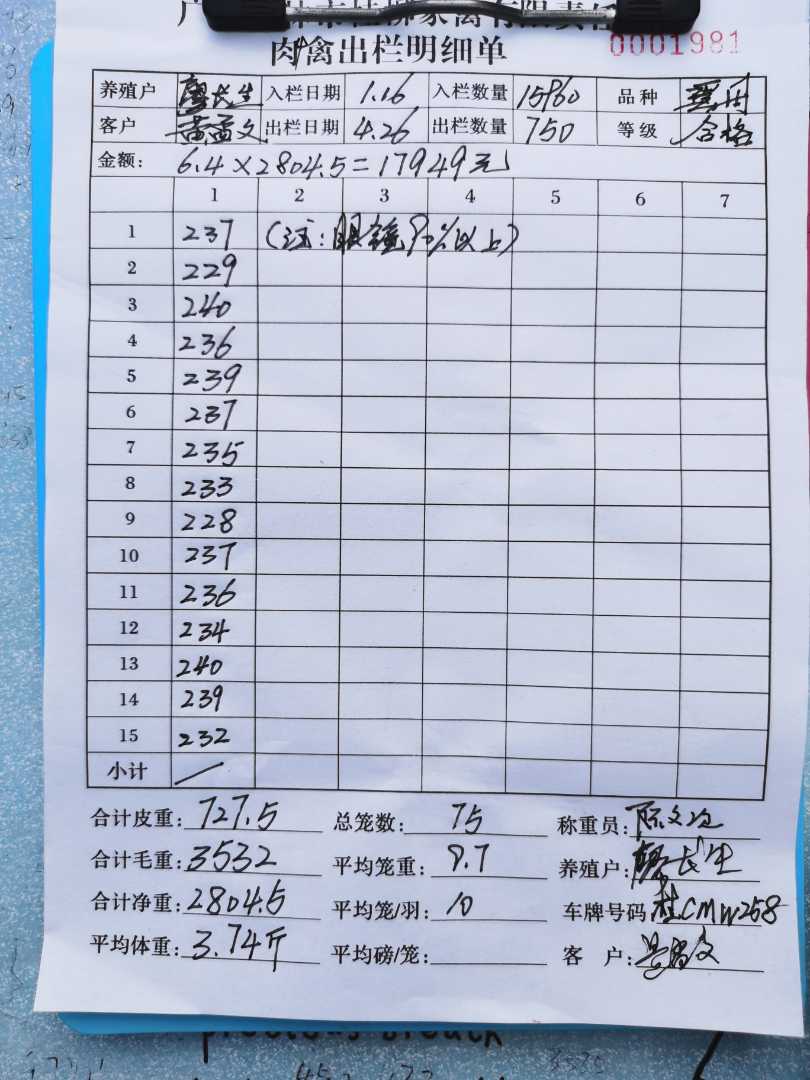 肉禽出栏明细单 0001981
养殖户 廖长生 入栏日期 1.16 入栏数量 15960 品种
客户 黄孟文 出栏日期 4.26 出栏数量 750 等级 合格
金额: 6.4×2804.5=17949元
1 2 3 4 5 6 7
1 237 (注: 眼 90%以上)
2 229
3 240
4 236
5 239
6 237
7 235
8 233
9 228
10 237
11 236
12 234
13 240
14 239
15 232
小计
合计皮重: 727.5 总笼数: 75 称重员:
合计毛重: 3532 平均笼重: 9.7 养殖户: 廖长生
合计净重: 2804.5 平均笼/羽: 10 车牌号码 桂CMW258
平均体重: 3.74斤 平均磅/笼: 客 户: